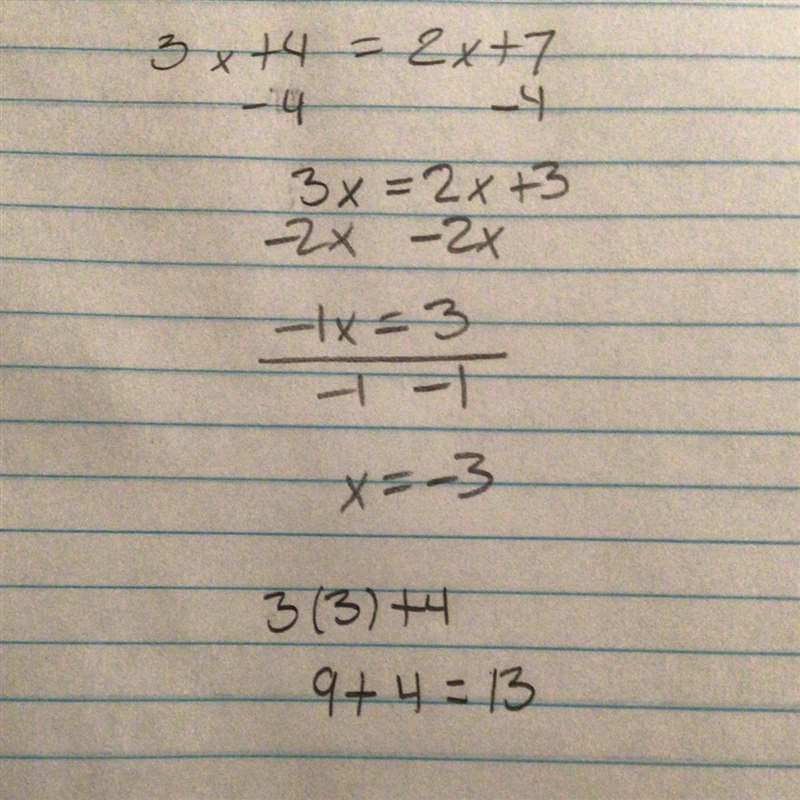 3x+4 = 2x+7
-4 -4
3x = 2x+3
-2x -2x
-1x = 3
-1 -1
x = -3
3(3)+4
9+4=13